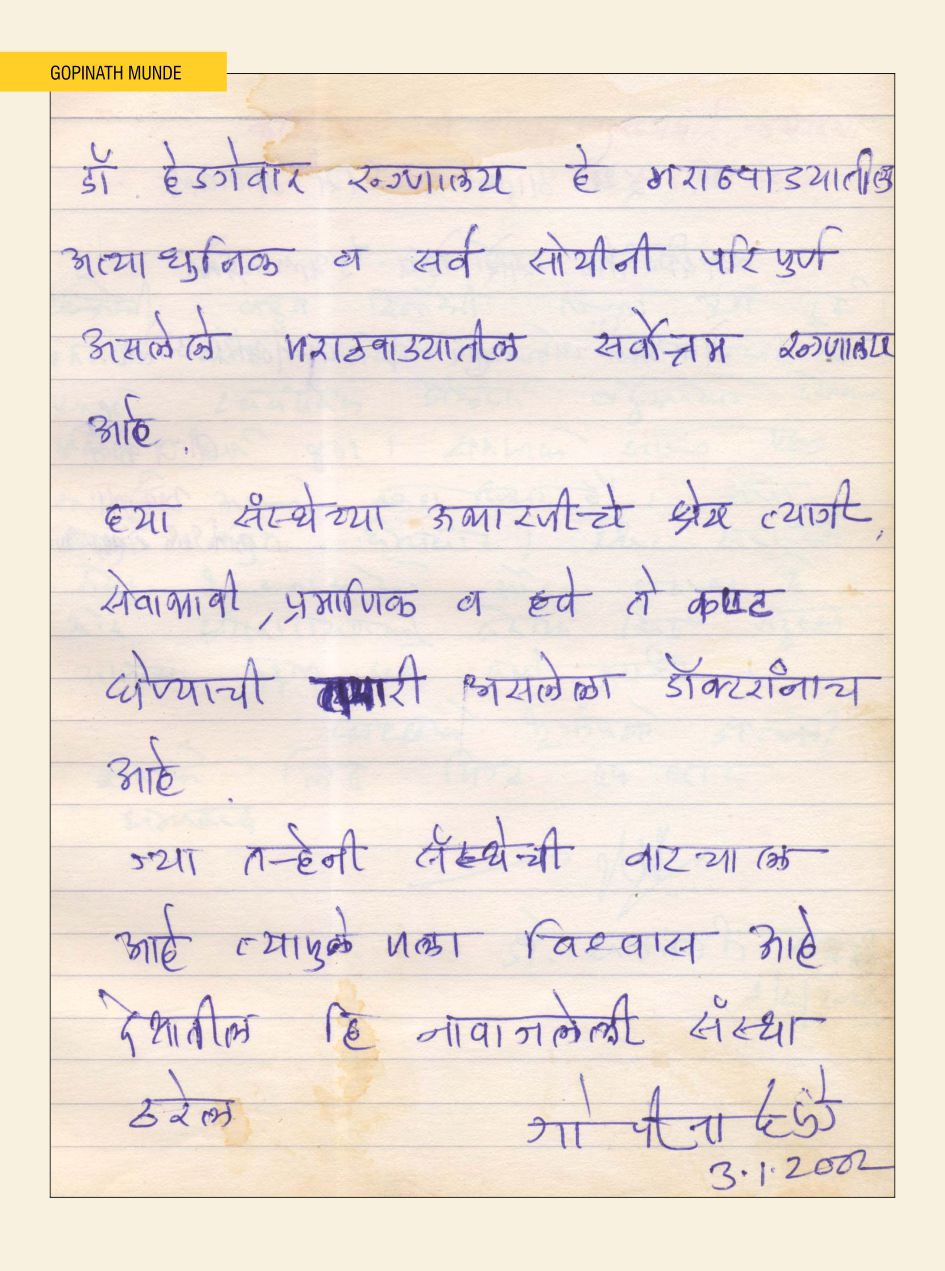 GOPINATH MUNDE
डॉ हेडगेवार रुग्णालय हे मराठवाडयातील
अत्याधुनिक व सर्व सोयीनी परिपुर्ण
असलेले मराठवाडयातील सर्वोत्तम रुग्णालय
आहे.
हया संस्थेच्या उभारणीचे श्रेय त्यागी,
सेवाभावी, प्रमाणिक व हवे ते कष्ट
घेण्याची तयारी असलेला डॉक्टरांनाच
आहे.
ज्या तऱ्हेनी संस्थेची वाटचाल
आहे त्यामुळे मला विश्वास आहे
देशातील हि नावाजलेली संस्था
ठरेल
3.1.2002